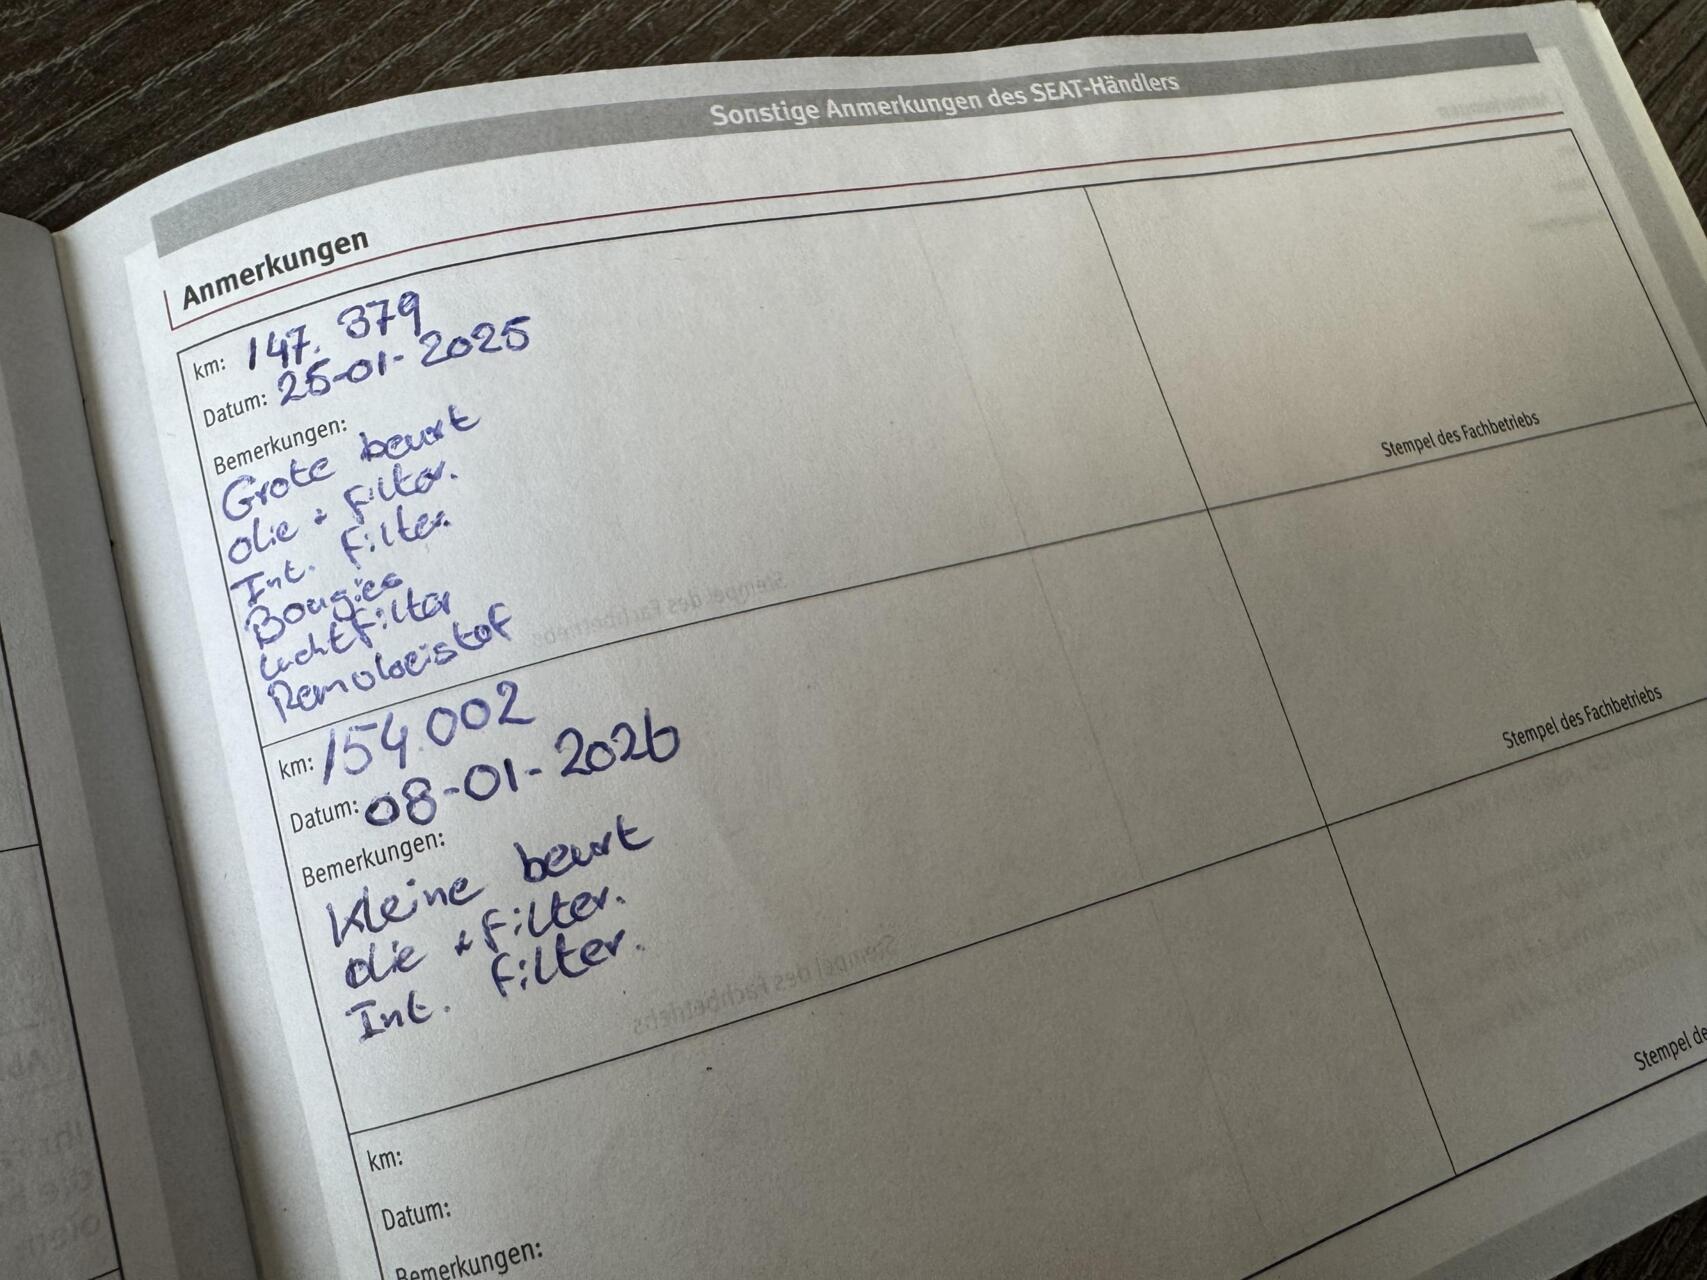 Sonstige Anmerkungen des SEAT-Händlers
Anmerkungen
km: 147.379
Datum: 25-01-2025
Bemerkungen:
Grote beurt
olie + filter.
Int. filter.
Bougies
luchtfilter
Remvloeistof
Stempel des Fachbetriebs
km: 154.002
Datum: 08-01-2026
Bemerkungen:
Kleine beurt
olie + filter.
Int. filter.
Stempel des Fachbetriebs
km:
Datum:
Bemerkungen:
Stempel de